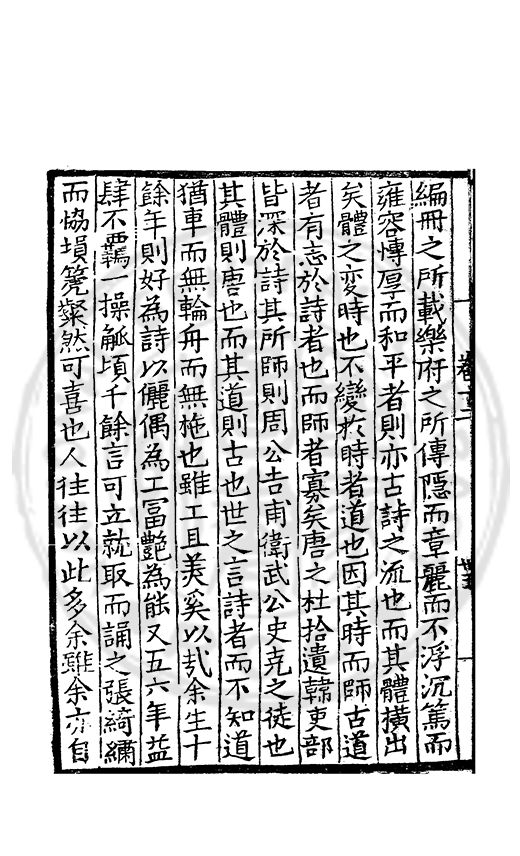 編冊之所載樂府之所傳隱而章麗而不浮沉篤而
雍容愽厚而和平者則亦古詩之流也而其體橫出
矣體之変時也不變扵時者道也因其時而師古道
者有志於詩者也而師者寡矣唐之杜拾遺韓吏部
皆深於詩其所師則周公吉甫衛武公史克之徒也
其體則唐也而其道則古也世之言詩者而不知道
猶車而無輪舟而無柂也雖工且美奚以㢤余生十
餘年則好為詩以儷偶為工冨艷為能又五六年益
肆不羈一操觚頃千餘言可立就取而誦之張綺繡
而恊塤箎粲然可喜也人徃徃以此多余雖余亦自
卷十二